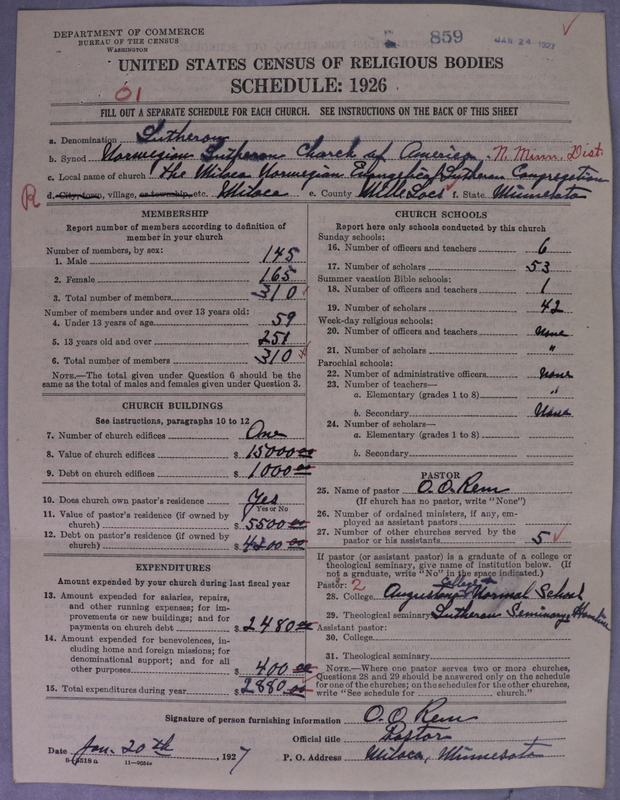 DEPARTMENT OF COMMERCE
BUREAU OF THE CENSUS
WASHINGTON
859
JAN 24 1927
UNITED STATES CENSUS OF RELIGIOUS BODIES
SCHEDULE: 1926
01
FILL OUT A SEPARATE SCHEDULE FOR EACH CHURCH. SEE INSTRUCTIONS ON THE BACK OF THIS SHEET
a. Denomination Lutheran
b. Synod Norwegian Lutheran Church of America - N. Minn. Dist.
c. Local name of church The Milaca Norwegian Evangelical Lutheran Congregation
R d. City, town, village, or township, etc. Milaca e. County Mille Lacs f. State Minnesota
MEMBERSHIP
Report number of members according to definition of
member in your church
Number of members, by sex:
1. Male 145
2. Female 165
3. Total number of members 310
Number of members under and over 13 years old:
4. Under 13 years of age 59
5. 13 years old and over 251
6. Total number of members 310
NOTE.—The total given under Question 6 should be the
same as the total of males and females given under Question 3.
CHURCH BUILDINGS
See instructions, paragraphs 10 to 12
7. Number of church edifices One
8. Value of church edifices $ 15000 00
9. Debt on church edifices $ 1000 00
10. Does church own pastor's residence Yes
Yes or No
11. Value of pastor's residence (if owned by
church) $ 5500 00
12. Debt on pastor's residence (if owned by
church) $ 00
EXPENDITURES
Amount expended by your church during last fiscal year
13. Amount expended for salaries, repairs,
and other running expenses; for im-
provements or new buildings; and for
payments on church debt $ 2480 00
14. Amount expended for benevolences, in-
cluding home and foreign missions; for
denominational support; and for all
other purposes $ 400 00
15. Total expenditures during year $ 2880 00
CHURCH SCHOOLS
Report here only schools conducted by this church
Sunday schools:
16. Number of officers and teachers 6
17. Number of scholars 53
Summer vacation Bible schools:
18. Number of officers and teachers 1
19. Number of scholars 42
Week-day religious schools:
20. Number of officers and teachers None
21. Number of scholars "
Parochial schools:
22. Number of administrative officers None
23. Number of teachers—
a. Elementary (grades 1 to 8) "
b. Secondary None
24. Number of scholars—
a. Elementary (grades 1 to 8)
b. Secondary
PASTOR
25. Name of pastor O. O. Rem
(If church has no pastor, write "None")
26. Number of ordained ministers, if any, em-
ployed as assistant pastors
27. Number of other churches served by the
pastor or his assistants 5
If pastor (or assistant pastor) is a graduate of a college or
theological seminary, give name of institution below. (If
not a graduate, write "No" in the space indicated.)
Pastor: 2
28. College Augustana Normal School
29. Theological seminary Lutheran Seminary, Hamline
Assistant pastor:
30. College
31. Theological seminary
NOTE.—Where one pastor serves two or more churches,
Questions 28 and 29 should be answered only on the schedule
for one of the churches; on the schedules for the other churches,
write "See schedule for church."
Signature of person furnishing information O. O. Rem
Official title Pastor
Date Jan. 20th, 1927
P. O. Address Milaca, Minnesota